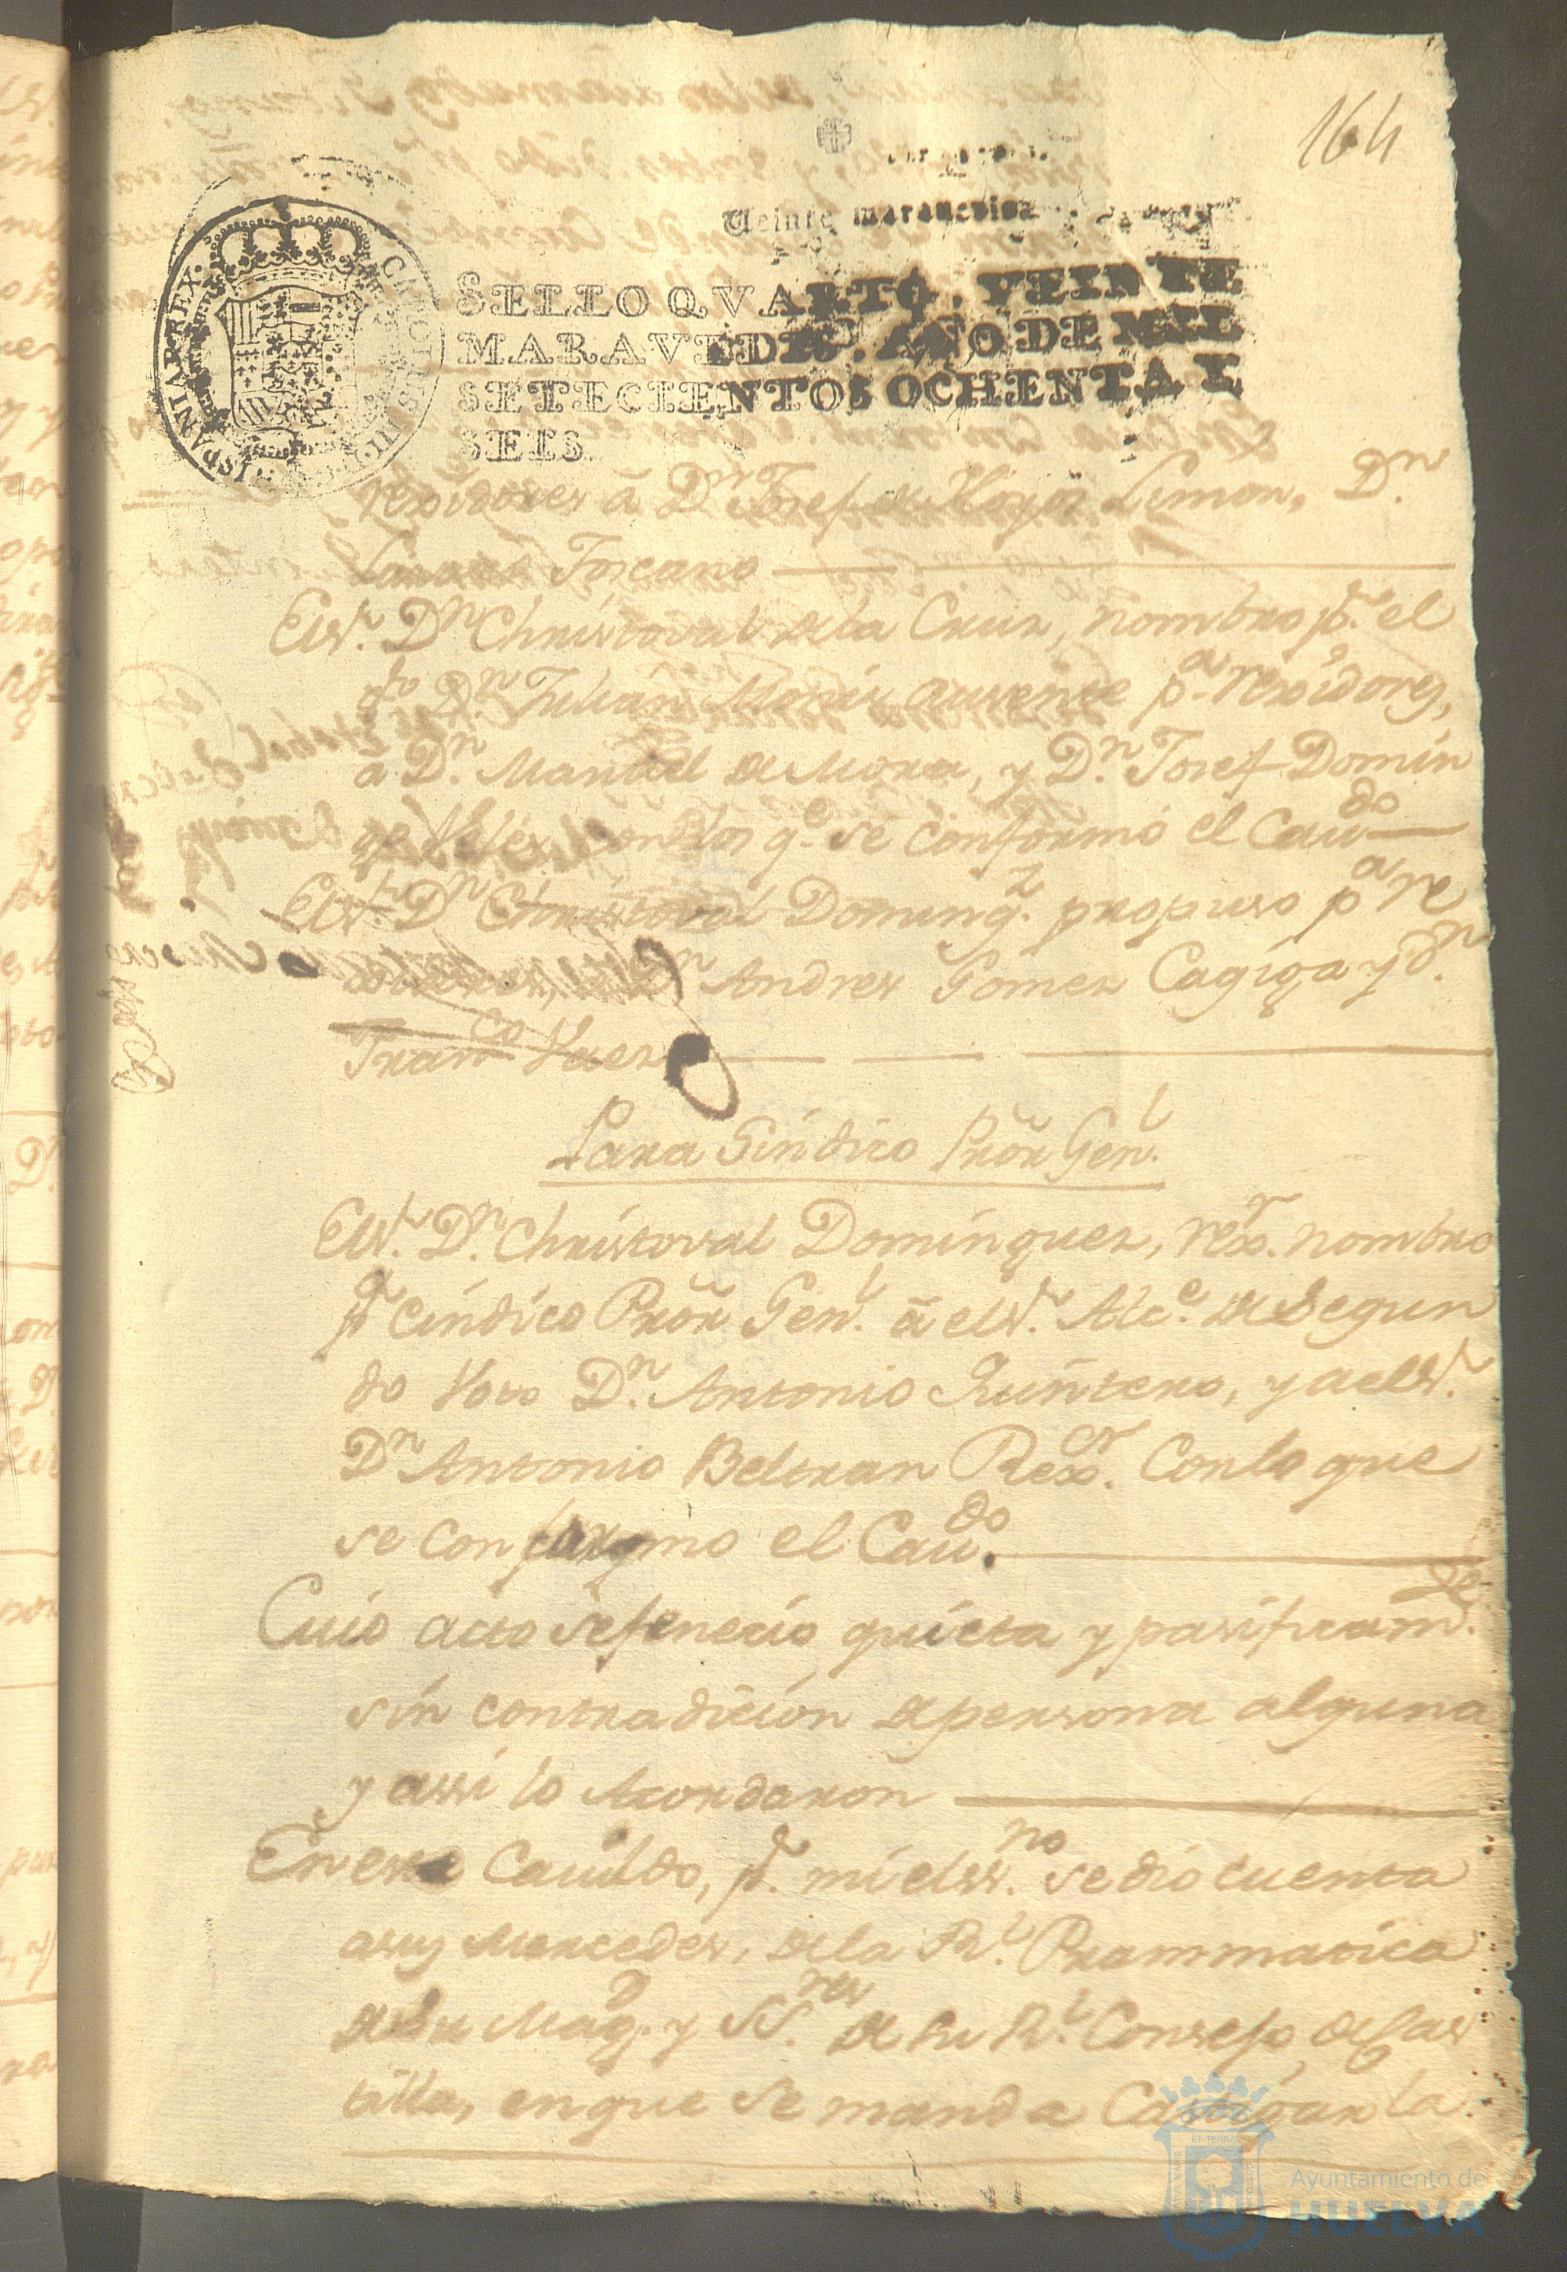 164
Veinte maravedis
SELLO QVARTO, VEINTE
MARAVEDIS, AÑO DE MIL
SETECIENTOS OCHENTA Y
SEIS.
CAROLUS III D G HISPANIAR REX
rexidores à Dn. Josef de Hoyos Limon, Dn.
Toscano
El Sr. Dn. Christoval de la Cruz, nombro pr. el
dho Dn. Julian ausente pa. rexidores,
a Dn. Manuel de Mora, y Dn. Josef Domin
gz Velez, con los qe. se conformó el Cavdo
El Sr. Dn. Christoval Domingz. propuso pa re
xidores, a Dn Andres Gomez Cagiga y Dn.
Franco Vaez
Para Sindico Pror Genl.
El Sr. Dn. Christoval Dominguez, rexr. nombro
pr Cindico Pror Genl. à el Sr. Alce. de Segun
do Voto Dn. Antonio Quintero, y a el Sr.
Dn Antonio Beltran Rexor. Con lo que
se conformo el Cavdo.
Cuio acto se fenecio quieta y pasificamte.
sin contradicion de persona alguna
y assi lo Acordaron
En este Cavildo, pr. mi el ssno. se dio cuenta
a sus Mercedes, de la Rl. Prammatica
de Su Magd. y SSres. de su Rl. Consejo de Cas
tilla, en que se manda Castigar la
Ayuntamiento de
HUELVA